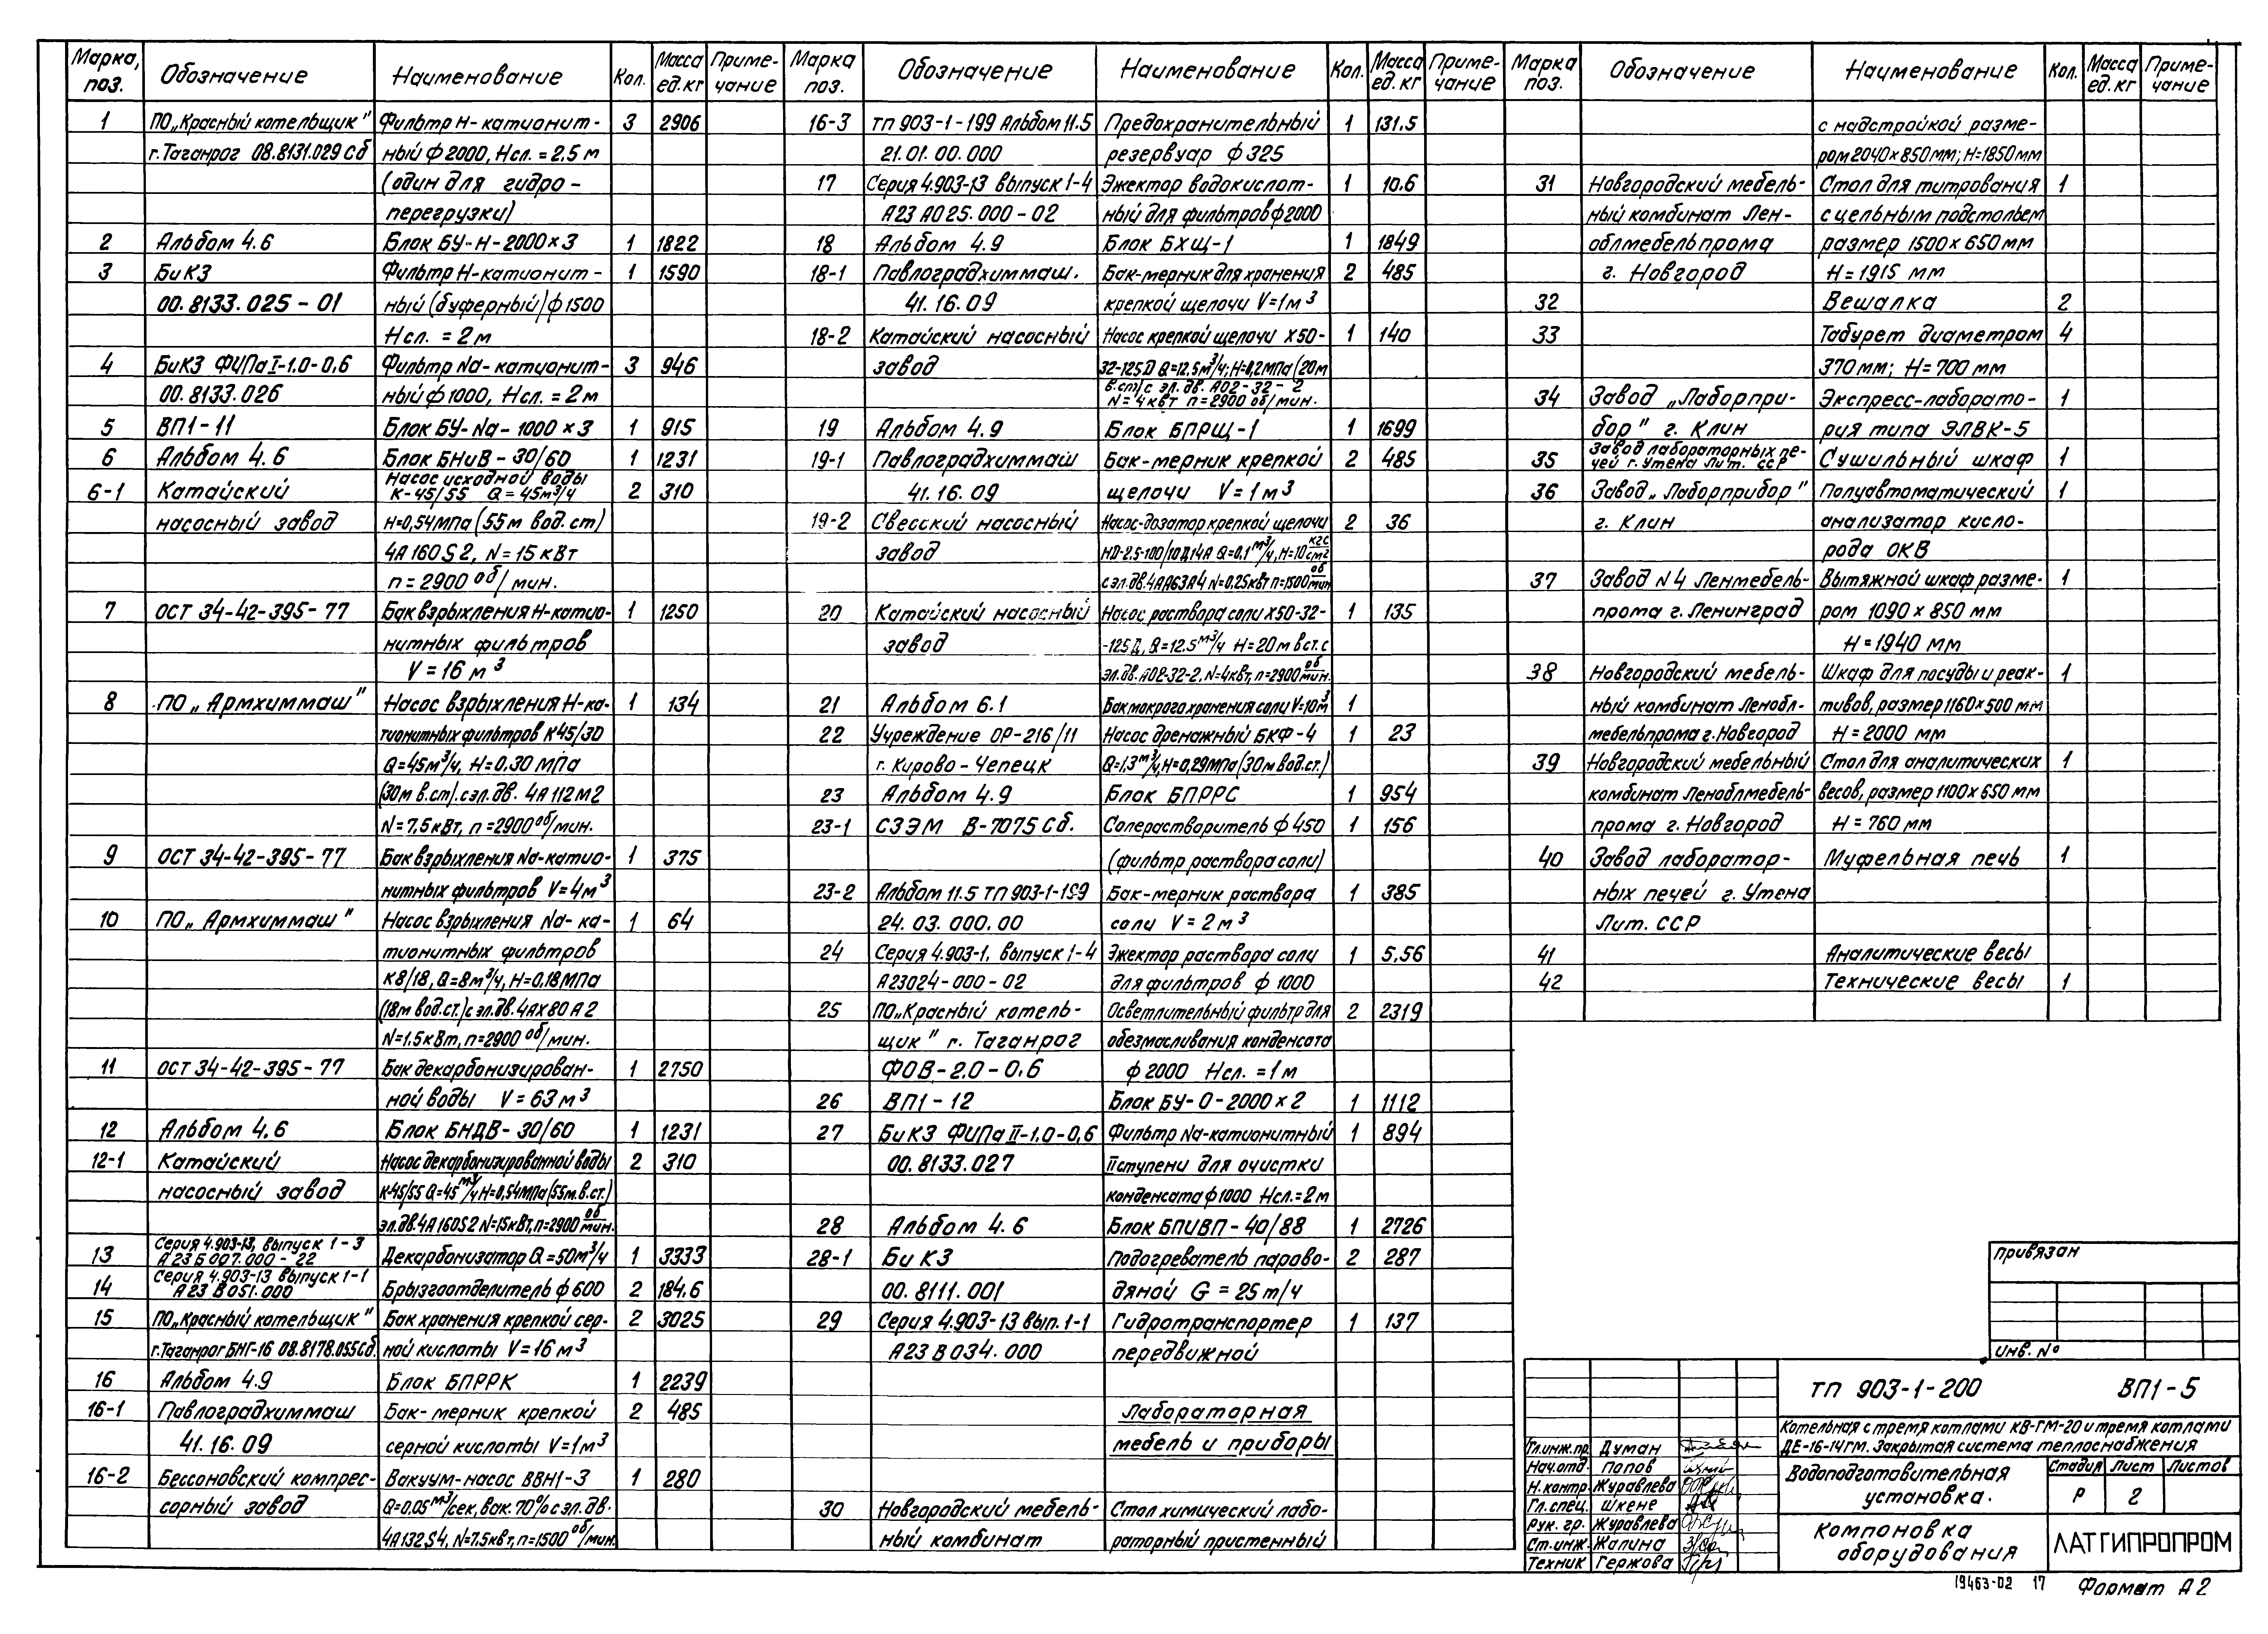 Марка, поз. Обозначение Наименование Кол. Масса ед. кг Примечание
1 ПО „Красный котельщик" Фильтр Н-катионит- 3 2906
г. Таганрог 08.8131.029 Сб ный ф 2000, Нсл. = 2,5 м
(один для гидро-
перегрузки)
2 Альбом 4.6 Блок БУ-Н-2000×3 1 1822
3 БиКЗ Фильтр Н-катионит- 1 1590
00.8133.025-01 ный (буферный) ф 1500
Нсл. = 2 м
4 БиКЗ ФИПа I-1,0-0,6 Фильтр Na-катионит- 3 946
00.8133.026 ный ф 1000, Нсл. = 2 м
5 ВП1-11 Блок БУ-Na-1000×3 1 915
6 Альбом 4.6 Блок БНиВ-30/60 1 1231
Насос исходной воды
6-1 Катайский К-45/55 Q = 45 м³/ч 2 310
насосный завод Н=0,54 МПа (55 м вод. ст)
4А 160 S 2, N = 15 кВт
п = 2900 об/мин.
7 ОСТ 34-42-395-77 Бак взрыхления Н-катио- 1 1250
нитных фильтров
V = 16 м³
8 ПО „Армхиммаш" Насос взрыхления Н-ка- 1 134
тионитных фильтров К45/30
Q=45 м³/ч, Н=0,30 МПа
(30м в.ст). с эл. дв. 4А 112М2
N=7,5 кВт, п=2900 об/мин.
9 ОСТ 34-42-395-77 Бак взрыхления Na-катио- 1 375
нитных фильтров V=4м³
10 ПО „Армхиммаш" Насос взрыхления Na-ка- 1 64
тионитных фильтров
К8/18, Q=8м³/ч, Н=0,18 МПа
(18м вод.ст.) с эл. дв. 4АХ80 А 2
N=1,5 кВт, п=2900 об/мин.
11 ОСТ 34-42-395-77 Бак декарбонизирован- 1 2750
ной воды V = 63 м³
12 Альбом 4.6 Блок БНДВ-30/60 1 1231
12-1 Катайский Насос декарбонизированной воды 2 310
насосный завод К-45/55 Q=45 м³/ч Н=0,54МПа (55м.в.ст.)
эл. дв. 4А160S2 N=15кВт, п=2900 об/мин.
Серия 4.903-13, выпуск 1-3
13 А 23 Б 007.000-22 Декарбонизатор Q = 50м³/ч 1 3333
Серия 4.903-13 выпуск 1-1
14 А23 В 051.000 Брызгоотделитель ф 600 2 184,6
15 ПО „Красный котельщик" Бак хранения крепкой сер- 2 3025
г. Таганрог БНГ-16 08.8178.055 Сб. ной кислоты V = 16 м³
16 Альбом 4.9 Блок БПРРК 1 2239
16-1 Павлоградхиммаш Бак-мерник крепкой 2 485
41.16.09 серной кислоты V=1м³
16-2 Бессоновский компрес- Вакуум-насос ВВН1-3 1 280
сорный завод Q=0,05 м³/сек, вак. 70% с эл. дв.
4А132S4, N=7,5кВт, п=1500 об/мин.
Марка поз. Обозначение Наименование Кол. Масса ед. кг Примечание
16-3 тп 903-1-199 Альбом 11.5 Предохранительный 1 131,5
21.01.00.000 резервуар ф 325
17 Серия 4.903-13 выпуск 1-4 Эжектор водокислот- 1 10,6
А23 А025.000-02 ный для фильтров ф 2000
18 Альбом 4.9 Блок БХЩ-1 1 1849
18-1 Павлоградхиммаш. Бак-мерник для хранения 2 485
41.16.09 крепкой щелочи V=1м³
18-2 Катайский насосный Насос крепкой щелочи Х50- 1 140
завод 32-125Д Q=12,5 м³/ч; Н=0,2 МПа (20м
в.ст) с эл. дв. А02-32-2
N=4 кВт п=2900 об/мин.
19 Альбом 4.9 Блок БПРЩ-1 1 1699
19-1 Павлоградхиммаш Бак-мерник крепкой 2 485
41.16.09 щелочи V = 1 м³
19-2 Свесский насосный Насос-дозатор крепкой щелочи 2 36
завод НД-2,5-100/10Д14А Q=0,1 м³/ч, Н=10 кгс/см²
с эл. дв. 4АА63А4 N=0,25кВт п=1500 об/мин
20 Катайский насосный Насос раствора соли Х50-32- 1 135
завод -125Д, Q=12,5 м³/ч Н=20м в ст. с
эл. дв. А02-32-2, N=4кВт, п=2900 об/мин.
21 Альбом 6.1 Бак мокрого хранения соли V=10м³ 1
22 Учреждение ОР-216/11 Насос дренажный БКФ-4 1 23
г. Кирово-Чепецк Q=1,3 м³/ч, Н=0,29МПа (30м вод.ст.)
23 Альбом 4.9 Блок БПРРС 1 954
23-1 СЗЭМ В-7075 Сб. Солерастворитель ф 450 1 156
(фильтр раствора соли)
23-2 Альбом 11.5 ТП 903-1-199 Бак-мерник раствора 1 385
24.03.000.00 соли V = 2 м³
24 Серия 4.903-1, выпуск 1-4 Эжектор раствора соли 1 5,56
А23024-000-02 для фильтров ф 1000
25 ПО „Красный котель- Осветлительный фильтр для 2 2319
щик" г. Таганрог обезмасливания конденсата
ФОВ-2,0-0,6 ф 2000 Нсл. = 1 м
26 ВП1-12 Блок БУ-0-2000×2 1 1112
27 БиКЗ ФИПа II-1,0-0,6 Фильтр Na-катионитный 1 894
00.8133.027 II ступени для очистки
конденсата ф 1000 Нсл.=2м
28 Альбом 4.6 Блок БПИВП-40/88 1 2726
28-1 БиКЗ Подогреватель парово- 2 287
00.8111.001 дяной G = 25 т/ч
29 Серия 4.903-13 вып. 1-1 Гидротранспортер 1 137
А23 В 034.000 передвижной
Лабораторная
мебель и приборы
30 Новгородский мебель- Стол химический лабо-
ный комбинат раторный пристенный
Марка поз. Обозначение Наименование Кол. Масса ед. кг Примечание
с надстройкой разме-
ром 2040×850мм; Н=1850мм
31 Новгородский мебель- Стол для титрования 1
ный комбинат Лен- с цельным подстольем
облмебельпрома размер 1500×650 мм
г. Новгород Н=1915 мм
32 Вешалка 2
33 Табурет диаметром 4
370 мм; Н=700 мм
34 Завод „Лаборпри- Экспресс-лаборато- 1
бор" г. Клин рия типа ЭЛВК-5
35 Завод лабораторных пе- Сушильный шкаф 1
чей г. Утена Лит. ССР
36 Завод „Лаборприбор" Полуавтоматический 1
г. Клин анализатор кисло-
рода ОКВ
37 Завод N 4 Ленмебель- Вытяжной шкаф разме- 1
прома г. Ленинград ром 1090×850 мм
Н=1940 мм
38 Новгородский мебель- Шкаф для посуды и реак- 1
ный комбинат Леноблм- тивов, размер 1160×500 мм
мебельпрома г. Новгород Н=2000 мм
39 Новгородский мебельный Стол для аналитических 1
комбинат Леноблмебель- весов, размер 1100×650 мм
прома г. Новгород Н=760 мм
40 Завод лаборатор- Муфельная печь 1
ных печей г. Утена
Лит. ССР
41 Аналитические весы
42 Технические весы 1
Привязан
Инв. №
ТП 903-1-200 ВП1-5
Котельная с тремя котлами КВ-ГМ-20 и тремя котлами
ДЕ-16-14ГМ. Закрытая система теплоснабжения
Гл. инж. пр. Думан
Нач. отд. Попов
Н. контр. Журавлева
Гл. спец. Шкене
Рук. гр. Журавлева
Ст. инж. Жалина
Техник Гержова
Водоподготовительная
установка.
Стадия Лист Листов
Р 2
Компоновка
оборудования
ЛАТГИПРОПРОМ
19463-02 17 Формат А2